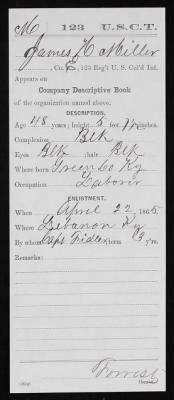 M 123 U.S.C.T.
James H Miller
, Co. E, 123 Reg't U. S. Col'd Inf.
Appears on
Company Descriptive Book
of the organization named above.
DESCRIPTION.
Age 48 years; height 5 feet inches.
Complexion Blk
Eyes Blk ; hair Blk
Where born Green Co Ky
Occupation Laborer
ENLISTMENT.
When April 22, 1865
Where Lebanon Ky
By whom Capt Fidler ; term 3 y'rs.
Remarks:
Forrest